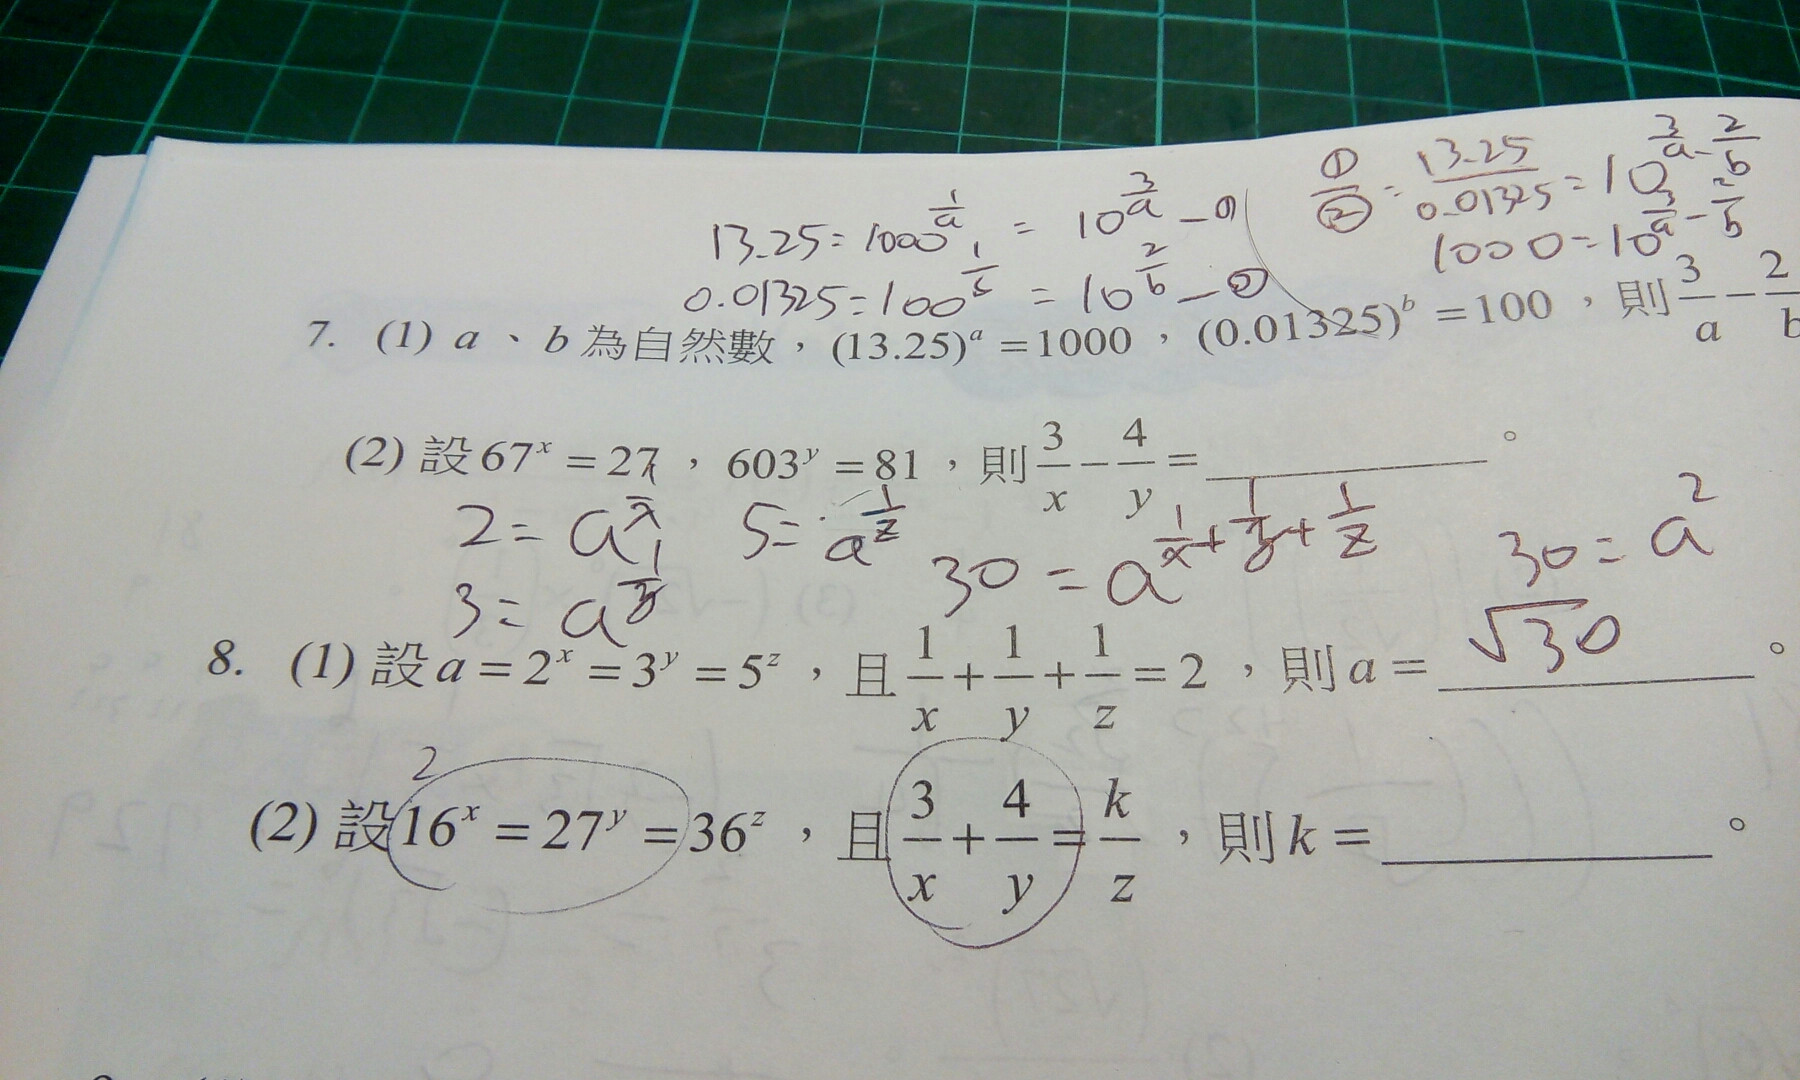 13.25=1000^(1/a) = 10^(3/a) —①
0.01325=100^(1/b) = 10^(2/b) —②
①/② = 13.25/0.01325 = 10^(3/a - 2/b)
1000=10^(3/a - 2/b)
7. (1) a、b為自然數，(13.25)^a =1000，(0.01325)^b =100，則 3/a − 2/b
(2) 設 67^x = 27，603^y = 81，則 3/x − 4/y = ______。
2= a^(1/x) 5= a^(1/z) 30 = a^(1/x + 1/y + 1/z) 30 = a^2
3= a^(1/y)
8. (1) 設 a = 2^x = 3^y = 5^z，且 1/x + 1/y + 1/z = 2，則 a = √30。
2
(2) 設 16^x = 27^y = 36^z，且 3/x + 4/y = k/z，則 k = ______。